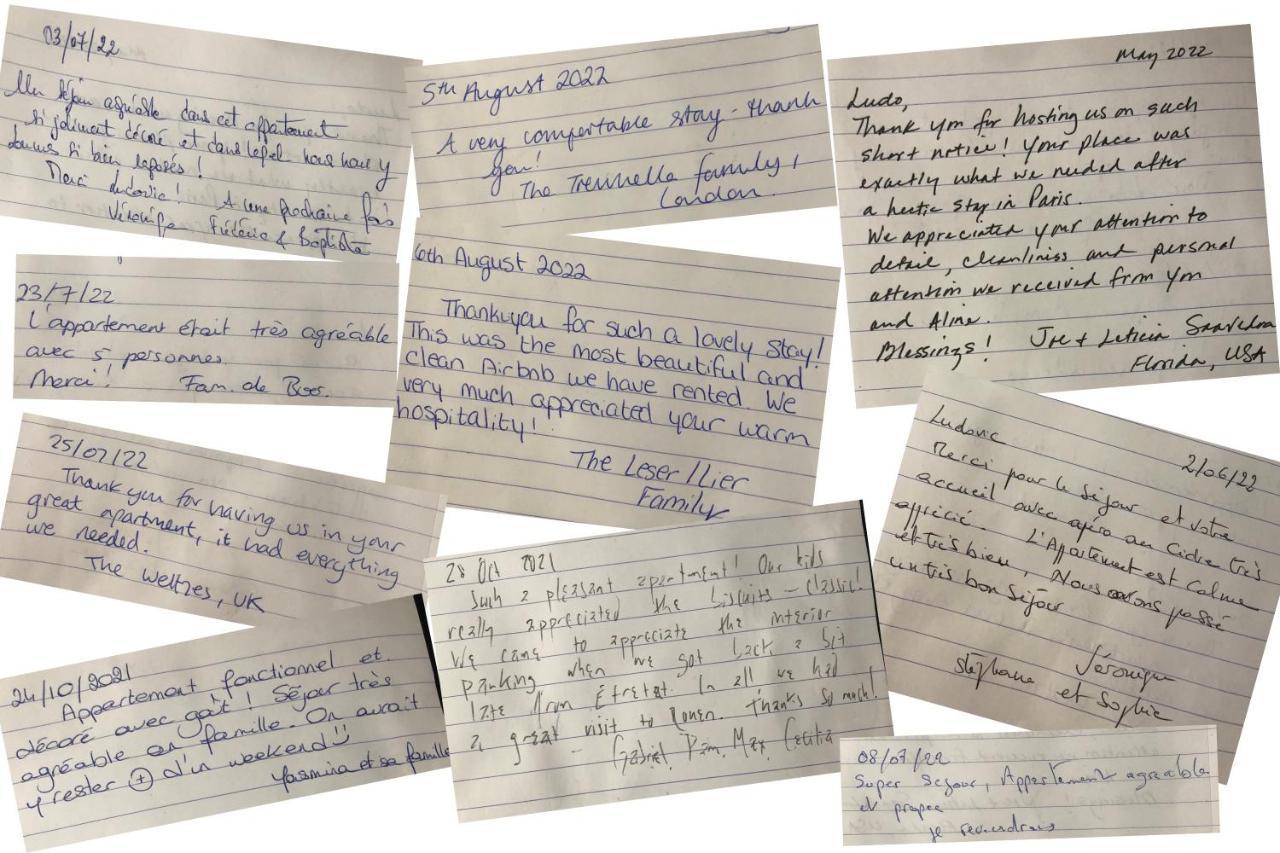 03/07/22
Un séjour agréable dans cet appartement
si joliment décoré et dans lequel nous nous y
sommes si bien reposés !
Merci Ludovic ! A une prochaine fois
Véronique Frédéric & Baptiste
5th August 2022
A very comfortable stay - thank
you!
The family,
London.
May 2022
Ludo,
Thank you for hosting us on such
short notice! Your place was
exactly what we needed after
a hectic stay in Paris.
We appreciated your attention to
detail, cleanliness and personal
attention we received from you
and Aline.
Blessings! Joe + Leticia Saavedra
Florida, USA
23/7/22
L'appartement était très agréable
avec 5 personnes.
Merci! Fam. de Boos.
6th August 2022
Thankyou for such a lovely stay!
This was the most beautiful and
clean Airbnb we have rented. We
very much appreciated your warm
hospitality!
The Leser/Lier
Family
25/07/22
Thank you for having us in your
great apartment, it had everything
we needed.
The UK
Ludovic
2/06/22
Merci pour le séjour et votre
accueil avec apéro au cidre très
apprécié. L'Appartement est calme
et très bien, Nous avons passé
un très bon séjour
Véronique
Stéphane et Sophie
28 Oct 2021
Such a pleasant apartment! Our kids
really appreciated the biscuits - classic!
We came to appreciate the interior
parking when we got back a bit
late from Étretat. In all we had
a great visit to Rouen. Thanks so much!
- Gabriel, Pam, Max,
24/10/2021
Appartement fonctionnel et
décoré avec goût ! Séjour très
agréable en famille. On aurait
y rester + d'un weekend
Yasmina et sa famille
08/07/22
Super Sejour, Appartement agreable
et propre
je reviendrais